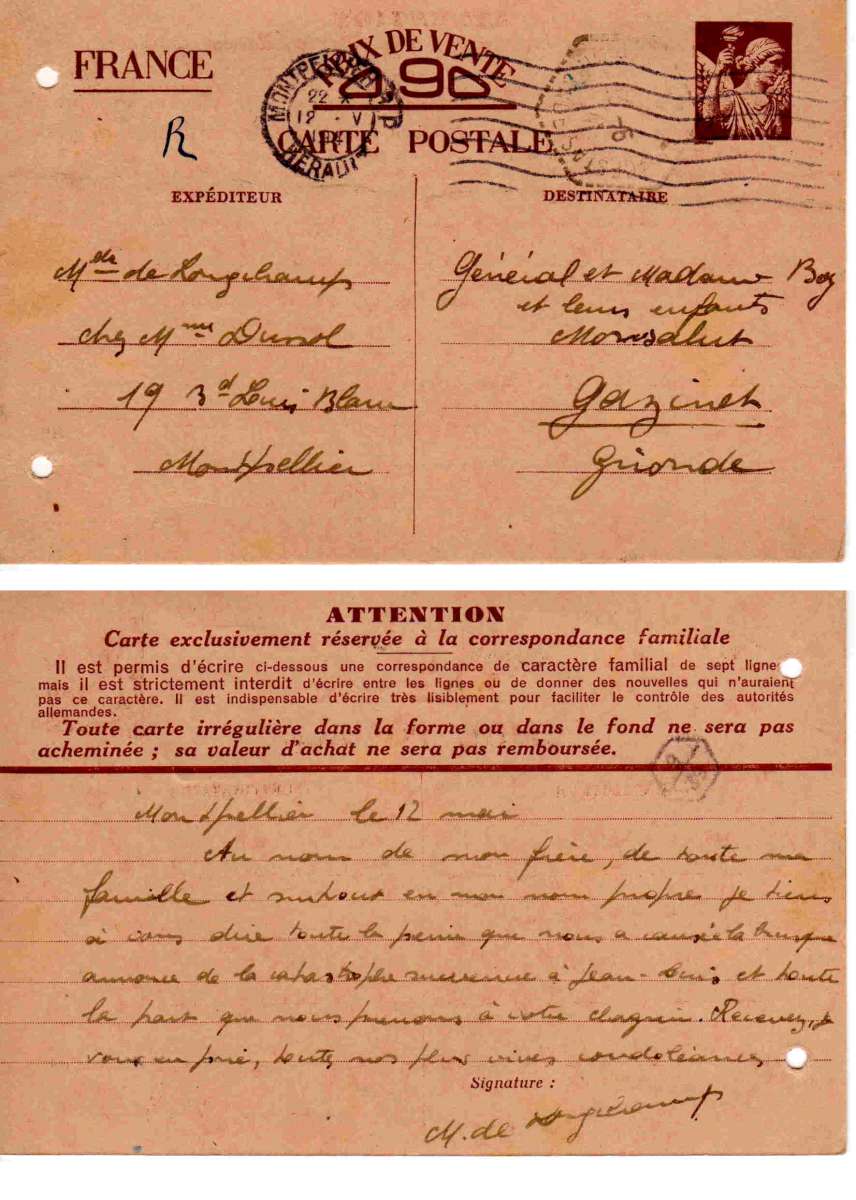 FRANCE
PRIX DE VENTE
90
CARTE POSTALE
MONTPELLIER
22
12 V
HERAULT
R
EXPÉDITEUR
DESTINATAIRE
Melle de Longchamps
chez Mme
19 Bd Louis Blanc
Montpellier
Général et Madame
et leurs enfants
Monsalut
Gazinet
Gironde
ATTENTION
Carte exclusivement réservée à la correspondance familiale
Il est permis d'écrire ci-dessous une correspondance de caractère familial de sept lignes
mais il est strictement interdit d'écrire entre les lignes ou de donner des nouvelles qui n'auraient
pas ce caractère. Il est indispensable d'écrire très lisiblement pour faciliter le contrôle des autorités
allemandes.
Toute carte irrégulière dans la forme ou dans le fond ne sera pas
acheminée ; sa valeur d'achat ne sera pas remboursée.
Montpellier le 12 mai
Au nom de mon frère, de toute ma
famille et surtout en mon nom propre je tiens
à vous dire toute la peine que nous a causée la brusque
annonce de la catastrophe survenue à Jean-Louis et toute
la part que nous prenons à votre chagrin. Recevez, je
vous en prie, toutes nos plus vives condoléances
Signature :
M. de Longchamps